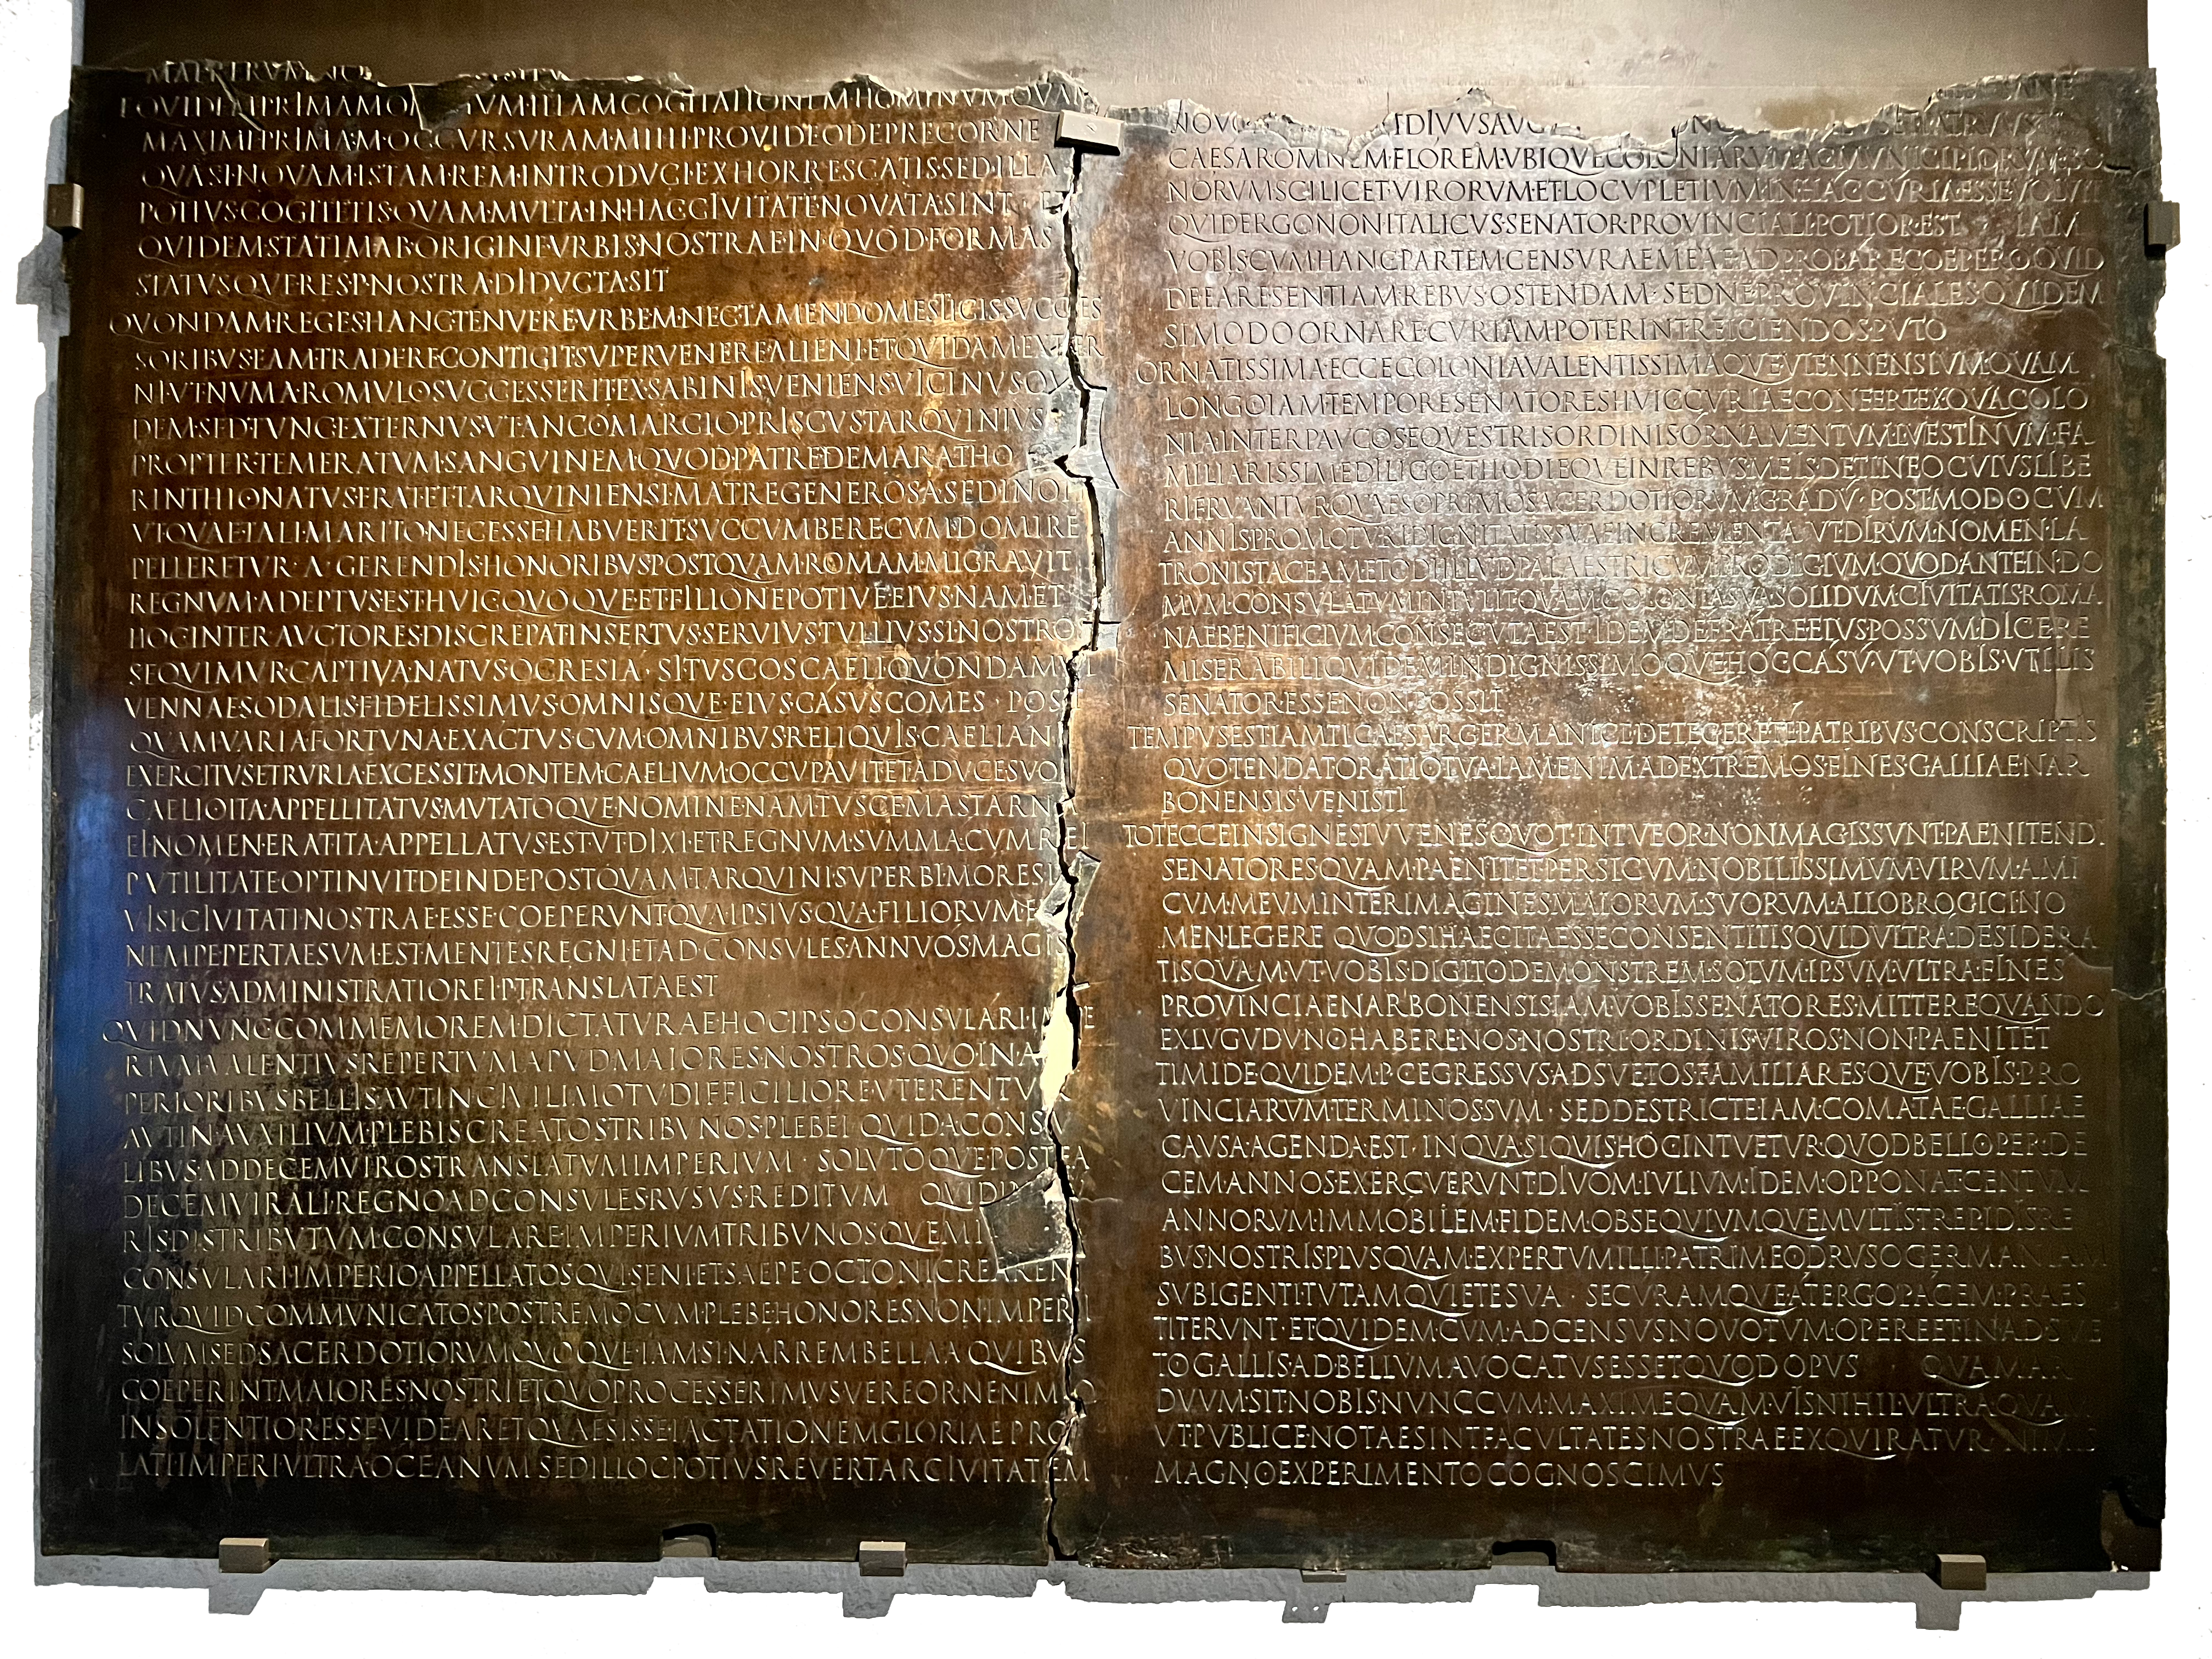 MAE RERVM NO
EQVIDEM PRIMAM OMNIVM ILLAM COGITATIONEM HOMINVM QVAM
MAXIME PRIMAM OCCVRSVRAM MIHI PROVIDEO DEPRECOR NE
QVASI NOVAM ISTAM REM INTRODVCI EXHORRESCATIS SED ILLA
POTIVS COGITETIS QVAM MVLTA IN HAC CIVITATE NOVATA SINT ET
QVIDEM STATIM AB ORIGINE VRBIS NOSTRAE IN QVOD FORMAS
STATVSQVE RES P NOSTRA DIDVCTA SIT
QVONDAM REGES HANC TENVERE VRBEM NEC TAMEN DOMESTICIS SVCCES
SORIBVS EAM TRADERE CONTIGIT SVPERVENERE ALIENI ET QVIDAM EXTER
NI VT NVMA ROMVLO SVCCESSERIT EX SABINIS VENIENS VICINVS QV
DEM SED TVNC EXTERNVS VT ANCO MARCIO PRISCVS TARQVINIVS
PROPTER TEMERATVM SANGVINEM QVOD PATRE DEMARATHO
RINTHIO NATVS ERAT ET TARQVINIENSI MATRE GENEROSA SED INOP
VT QVAE TALI MARITO NECESSE HABVERIT SVCCVMBERE CVM DOMI RE
PELLERETVR A GERENDIS HONORIBVS POSTQVAM ROMAM MIGRAVIT
REGNVM ADEPTVS EST HVIC QVOQVE ET FILIO NEPOTIVE EIVS NAM ET
HOC INTER AVCTORES DISCREPAT INSERTVS SERVIVS TVLLIVS SI NOSTROS
SEQVIMVR CAPTIVA NATVS OCRESIA SI TVSCOS CAELI QVONDAM VI
VENNAE SODALIS FIDELISSIMVS OMNISQVE EIVS CASVS COMES POST
QVAM VARIA FORTVNA EXACTVS CVM OMNIBVS RELIQVIS CAELIANI
EXERCITVS ETRVRIA EXCESSIT MONTEM CAELIVM OCCVPAVIT ET A DVCE SVO
CAELIO ITA APPELLITATVS MVTATOQVE NOMINE NAM TVSCE MASTARNA
EI NOMEN ERAT ITA APPELLATVS EST VT DIXI ET REGNVM SVMMA CVM REI
P VTILITATE OPTINVIT DEINDE POSTQVAM TARQVINI SVPERBI MORES
VISI CIVITATI NOSTRAE ESSE COEPERVNT QVA IPSIVS QVA FILIORVM E
NEMPE PERTAESVM EST MENTES REGNI ET AD CONSVLES ANNVOS MAGIS
TRATVS ADMINISTRATIO REI P TRANSLATA EST
QVID NVNC COMMEMOREM DICTATVRAE HOC IPSO CONSVLARI IMPE
RIVM VALENTIVS REPERTVM APVD MAIORES NOSTROS QVO IN A
PERIORIBVS BELLIS AVT IN CIVILI MOTV DIFFICILIORE VTERENTVR
AVT IN AVXILIVM PLEBIS CREATOS TRIBVNOS PLEBEI QVID A CONSV
LIBVS AD DECEMVIROS TRANSLATVM IMPERIVM SOLVTOQVE POSTEA
DECEMVIRALI REGNO AD CONSVLES RVSVS REDITVM QVID IN
RIS DISTRIBVTVM CONSVLARE IMPERIVM TRIBVNOSQVE MI
CONSVLARI IMPERIO APPELLATOS QVI SENI ET SAEPE OCTONI CREAREN
TVR QVID COMMVNICATOS POSTREMO CVM PLEBE HONORES NON IMPERI
SOLVM SED SACERDOTIORVM QVOQVE IAM SI NARREM BELLA A QVIBVS
COEPERINT MAIORES NOSTRI ET QVO PROCESSERIMVS VEREOR NE NIMIO
INSOLENTIOR ESSE VIDEAR ET QVAESISSE IACTATIONEM GLORIAE PRO
LATI IMPERI VLTRA OCEANVM SED ILLOC POTIVS REVERTAR CIVITATEM
NOVO DIVVS AVG PATRVVS
CAESAR OMNEM FLOREM VBIQVE COLONIARVM AC MVNICIPIORVM BO
NORVM SCILICET VIRORVM ET LOCVPLETIVM IN HAC CVRIA ESSE VOLVIT
QVID ERGO NON ITALICVS SENATOR PROVINCIALI POTIOR EST IAM
VOBIS CVM HANC PARTEM CENSVRAE MEAE ADPROBARE COEPERO QVID
DE EA RE SENTIAM REBVS OSTENDAM SED NE PROVINCIALES QVIDEM
SI MODO ORNARE CVRIAM POTERINT REICIENDOS PVTO
ORNATISSIMA ECCE COLONIA VALENTISSIMAQVE VIENNENSIVM QVAM
LONGO IAM TEMPORE SENATORES HVIC CVRIAE CONFERT EX QVA COLO
NIA INTER PAVCOS EQVESTRIS ORDINIS ORNAMENTVM L VESTINVM FA
MILIARISSIME DILIGO ET HODIEQVE IN REBVS MEIS DETINEO CVIVS LIBE
RI FRVANTVR QVAESO PRIMO SACERDOTIORVM GRADV POST MODO CVM
ANNIS PROMOTVRI DIGNITATIS SVAE INCREMENTA VT DIRVM NOMEN LA
TRONIS TACEAM ET ODI ILLVD PALAESTRICVM PRODIGIVM QVOD ANTE IN DO
MVM CONSVLATVM INTVLIT QVAM COLONIA SVA SOLIDVM CIVITATIS ROMA
NAE BENIFICIVM CONSECVTA EST IDEM DE FRATRE EIVS POSSVM DICERE
MISERABILI QVIDEM INDIGNISSIMOQVE HOC CASV VT VOBIS VTILIS
SENATOR ESSE NON POSSIT
TEMPVS EST IAM TI CAESAR GERMANICE DETEGERE TE PATRIBVS CONSCRIPTIS
QVO TENDAT ORATIO TVA IAM ENIM AD EXTREMOS FINES GALLIAE NAR
BONENSIS VENISTI
TOT ECCE INSIGNES IVVENES QVOT INTVEOR NON MAGIS SVNT PAENITENDI
SENATORES QVAM PAENITET PERSICVM NOBILISSIMVM VIRVM AMI
CVM MEVM INTER IMAGINES MAIORVM SVORVM ALLOBROGICI NO
MEN LEGERE QVOD SI HAEC ITA ESSE CONSENTITIS QVID VLTRA DESIDERA
TIS QVAM VT VOBIS DIGITO DEMONSTREM SOLVM IPSVM VLTRA FINES
PROVINCIAE NARBONENSIS IAM VOBIS SENATORES MITTERE QVANDO
EX LVGVDVNO HABERE NOS NOSTRI ORDINIS VIROS NON PAENITET
TIMIDE QVIDEM P C EGRESSVS ADSVETOS FAMILIARESQVE VOBIS PRO
VINCIARVM TERMINOS SVM SED DESTRICTE IAM COMATAE GALLIAE
CAVSA AGENDA EST IN QVA SI QVIS HOC INTVETVR QVOD BELLO PER DE
CEM ANNOS EXERCVERVNT DIVOM IVLIVM IDEM OPPONAT CENTVM
ANNORVM IMMOBILEM FIDEM OBSEQVIVMQVE MVLTIS TREPIDIS RE
BVS NOSTRIS PLVS QVAM EXPERTVM ILLI PATRI MEO DRVSO GERMANIAM
SVBIGENTI TVTAM QVIETE SVA SECVRAMQVE A TERGO PACEM PRAES
TITERVNT ET QVIDEM CVM AD CENSVS NOVO TVM OPERE ET INADSVE
TO GALLIS AD BELLVM AVOCATVS ESSET QVOD OPVS QVAM AR
DVVM SIT NOBIS NVNC CVM MAXIME QVAMVIS NIHIL VLTRA QVAM
VT PVBLICE NOTAE SINT FACVLTATES NOSTRAE EXQVIRATVR NIMIS
MAGNO EXPERIMENTO COGNOSCIMVS